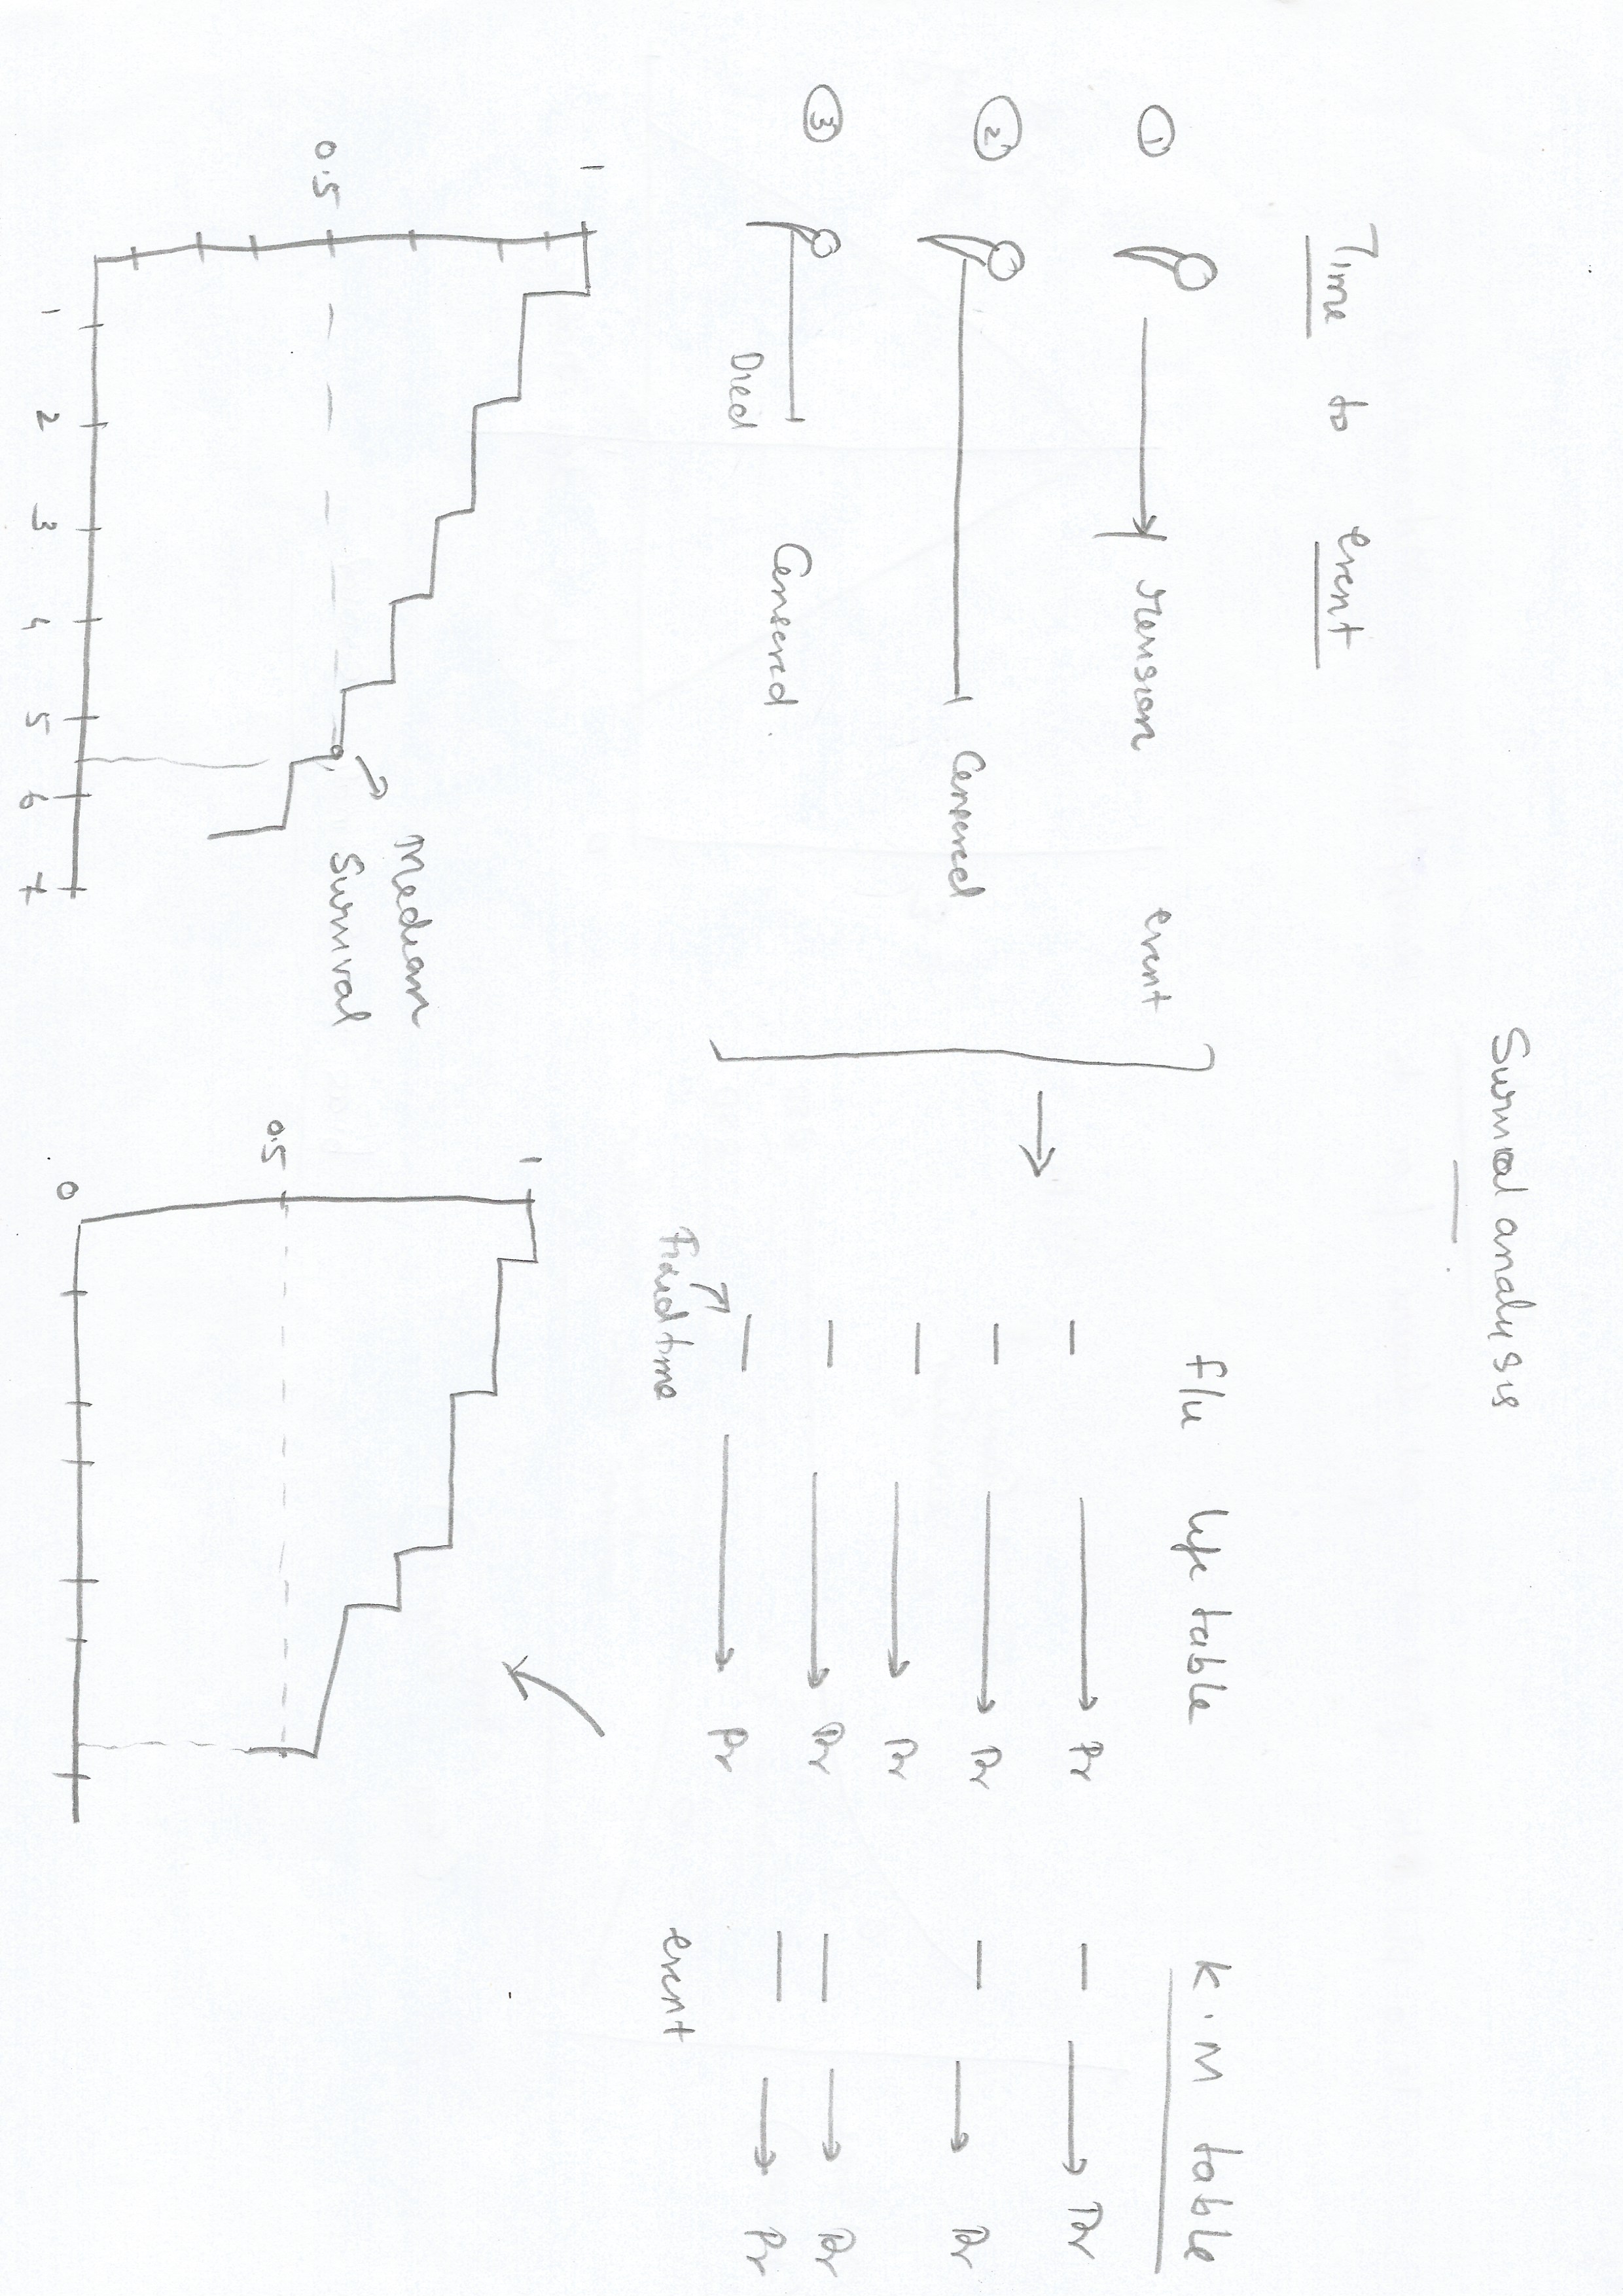 Survival analysis
Time to event
① revision event
② Censored
③ Died Censored
f/u life table
Pr
Pr
Pr
Pr
Pr
Fixed time
K.M table
Pr
Pr
Pr
Pr
event
1
0.5
Median
Survival
1 2 3 4 5 6 7
1
0.5
0